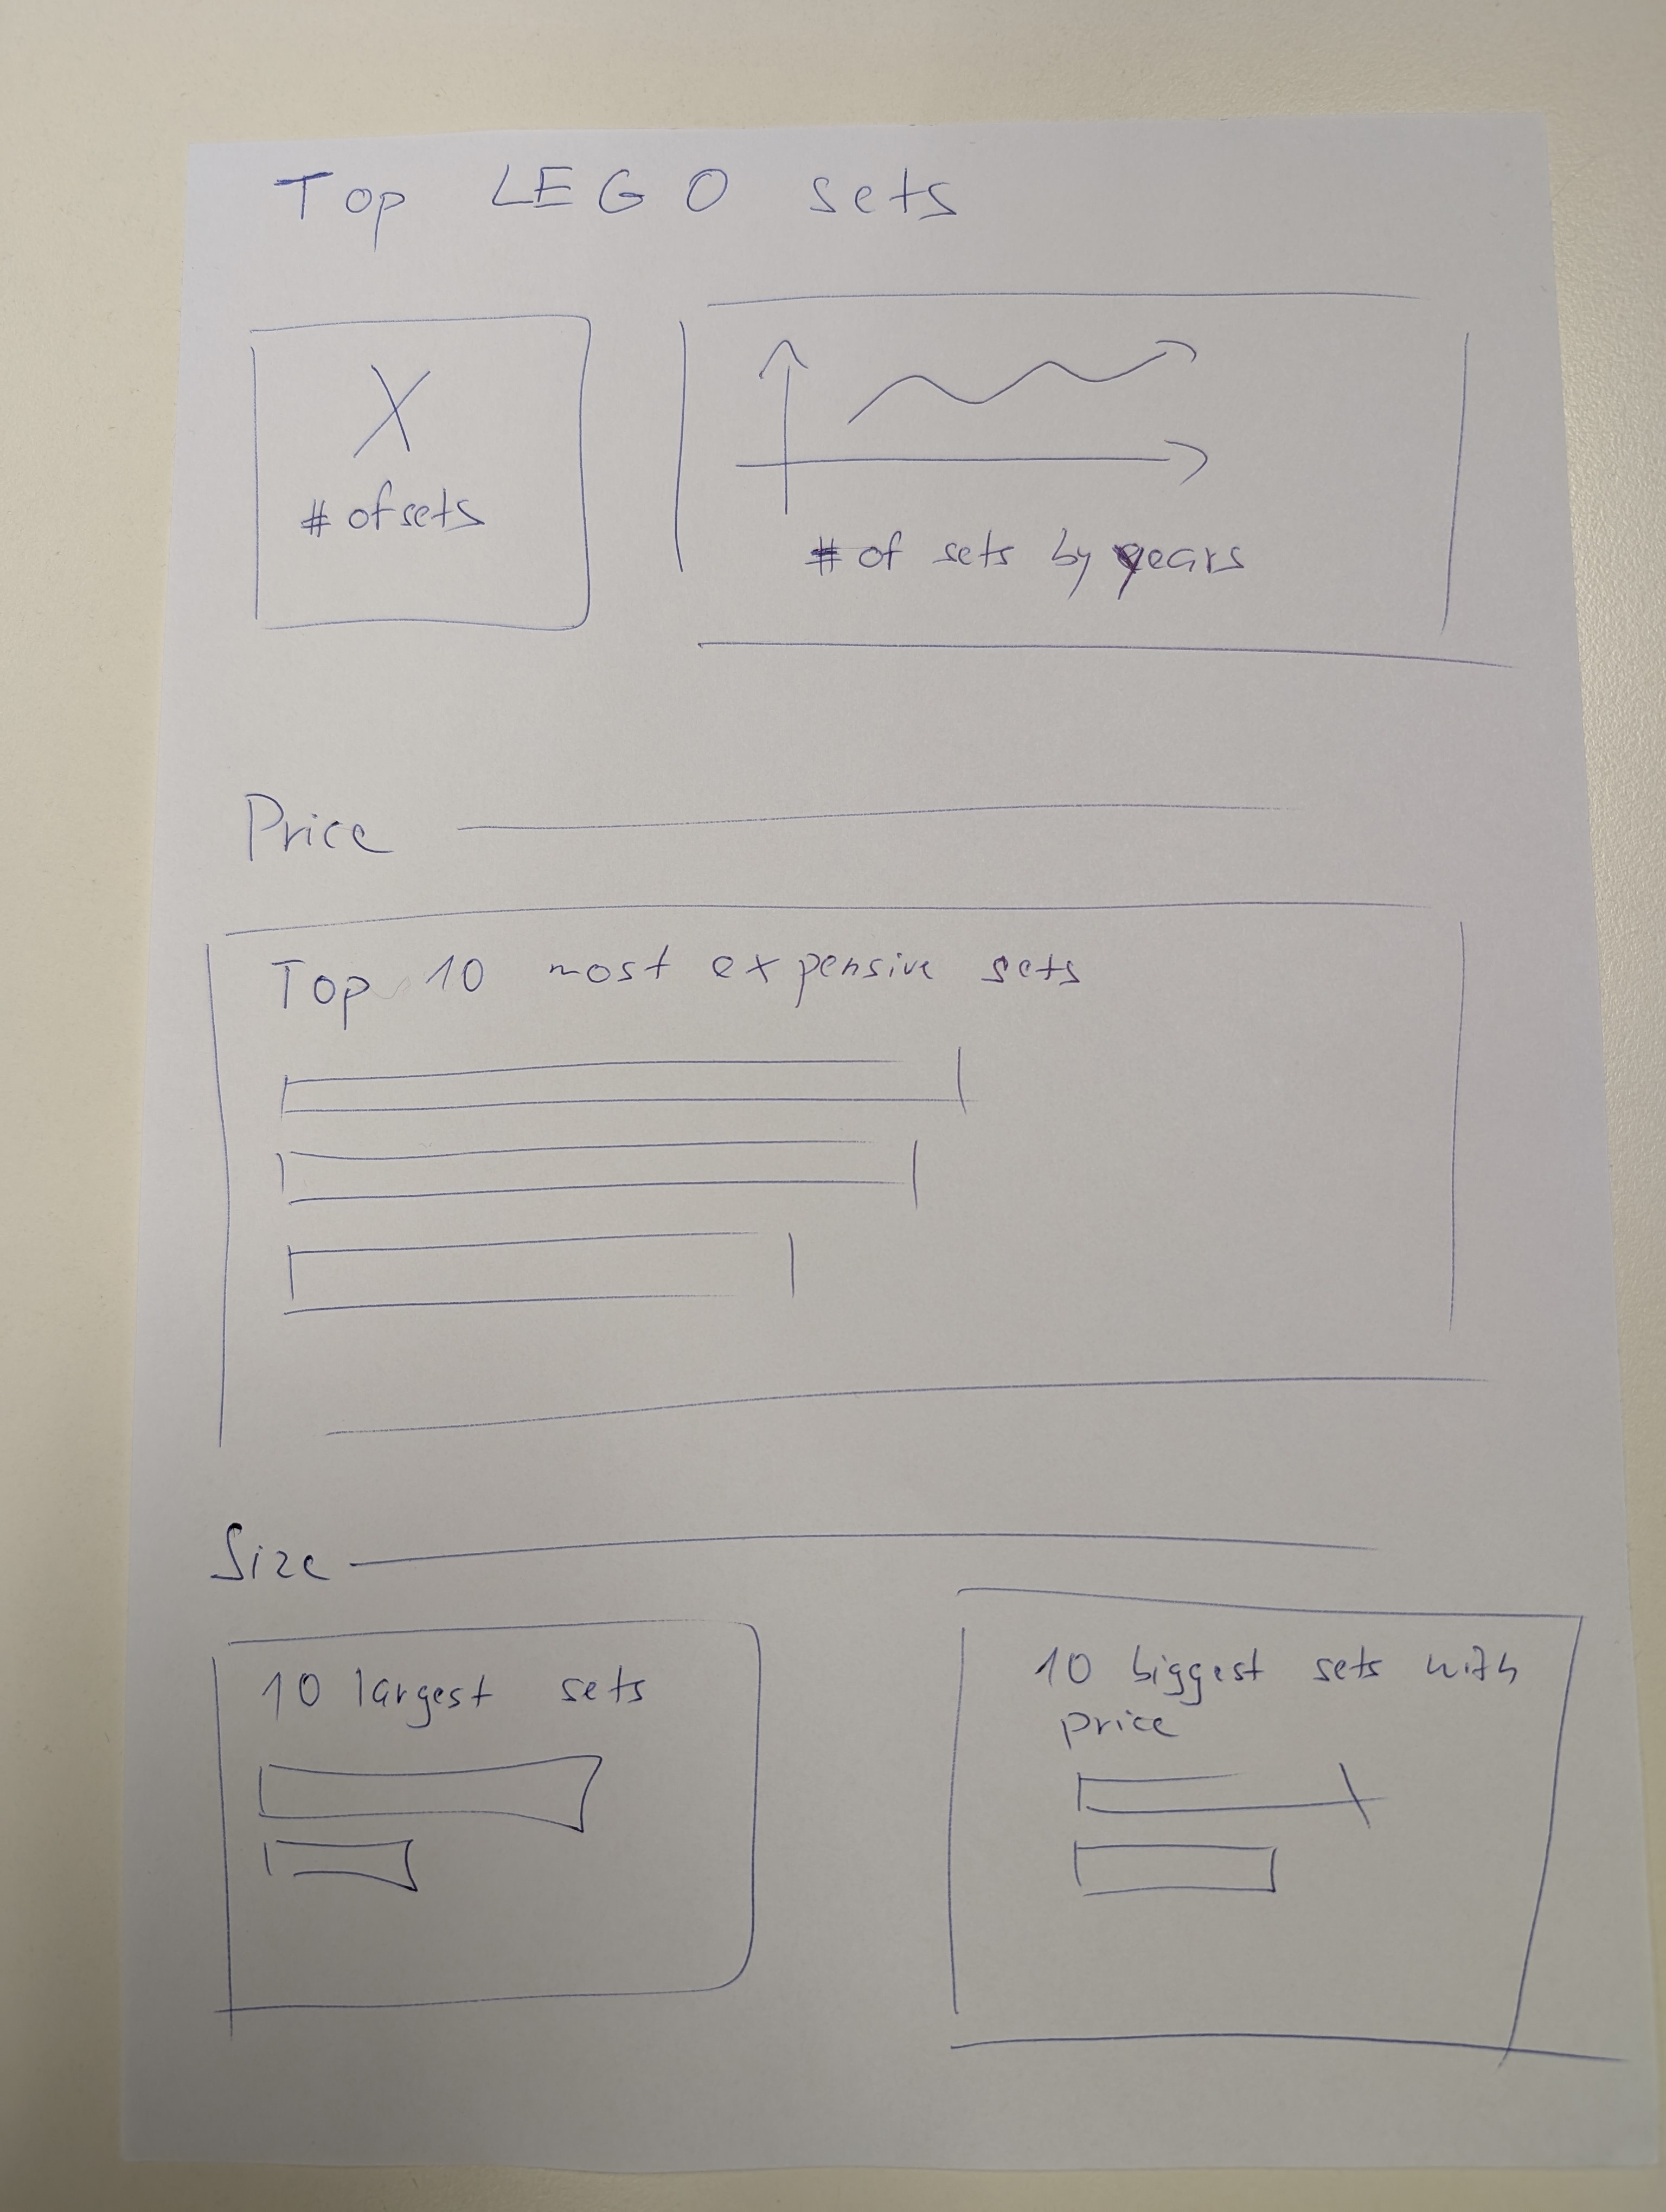 Top LEGO sets
X
# of sets
# of sets by years
Price
Top 10 most expensive sets
Size
10 largest sets
10 biggest sets with
price